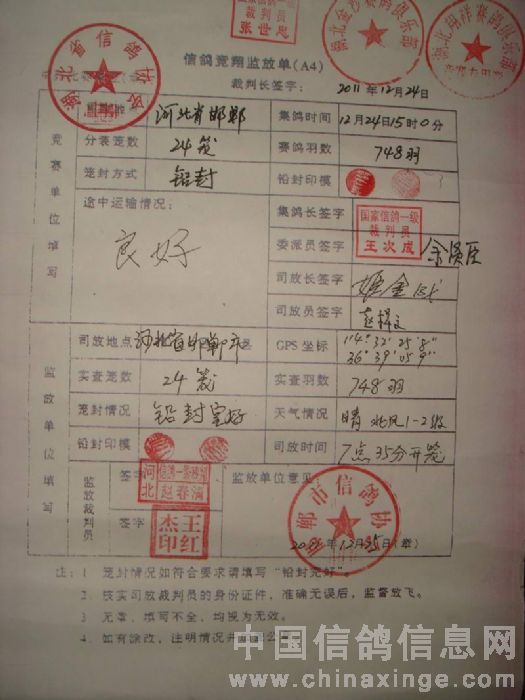 国家信鸽一级
裁判员
张世忠
湖北省信鸽协会
信鸽竞翔监放单(A4)
裁判长签字: 2011年12月24日
竞赛单位填写
河北省邯郸
集鸽时间 12月24日15时0分
分装笼数 24笼
赛鸽羽数 748羽
笼封方式 铅封
铅封印模
途中运输情况:
良好
集鸽长签字
国家信鸽一级
裁判员
王次成
委派员签字
司放长签字
司放员签字
监放单位填写
司放地点 河北省邯郸市县
GPS坐标 114° 32' 25.8"
36° 39' 05.9"
实查笼数 24笼
实查羽数 748羽
笼封情况 铅封完好
天气情况 晴 北风1-2级
铅封印模
司放时间 7点35分开笼
监放裁判员
签字
河北
赵春满
签字
王红杰印
监放单位意见:
邯郸市信鸽协会
2011年12月25日(章)
注: 1 笼封情况如符合要求请填写“铅封完好”。
2. 核实司放裁判员的身份证件,准确无误后,监督放飞。
3 无章、填写不全、均视为无效。
4. 如有涂改,注明情况并
中国信鸽信息网
www.chinaxinge.com